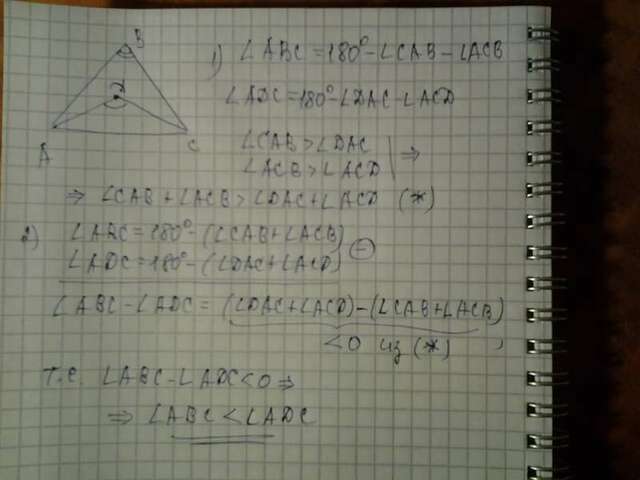 B
A
C
1) ∠ABC = 180° - ∠CAB - ∠ACB
∠ADC = 180° - ∠DAC - ∠ACD
∠CAB > ∠DAC
∠ACB > ∠ACD | ⇒
⇒ ∠CAB + ∠ACB > ∠DAC + ∠ACD (*)
2) ∠ABC = 180° - (∠CAB + ∠ACB)
∠ADC = 180° - (∠DAC + ∠ACD) ⊖
∠ABC - ∠ADC = (∠DAC + ∠ACD) - (∠CAB + ∠ACB)
< 0 из (*) ,
т.е. ∠ABC - ∠ADC < 0 ⇒
⇒ ∠ABC < ∠ADC